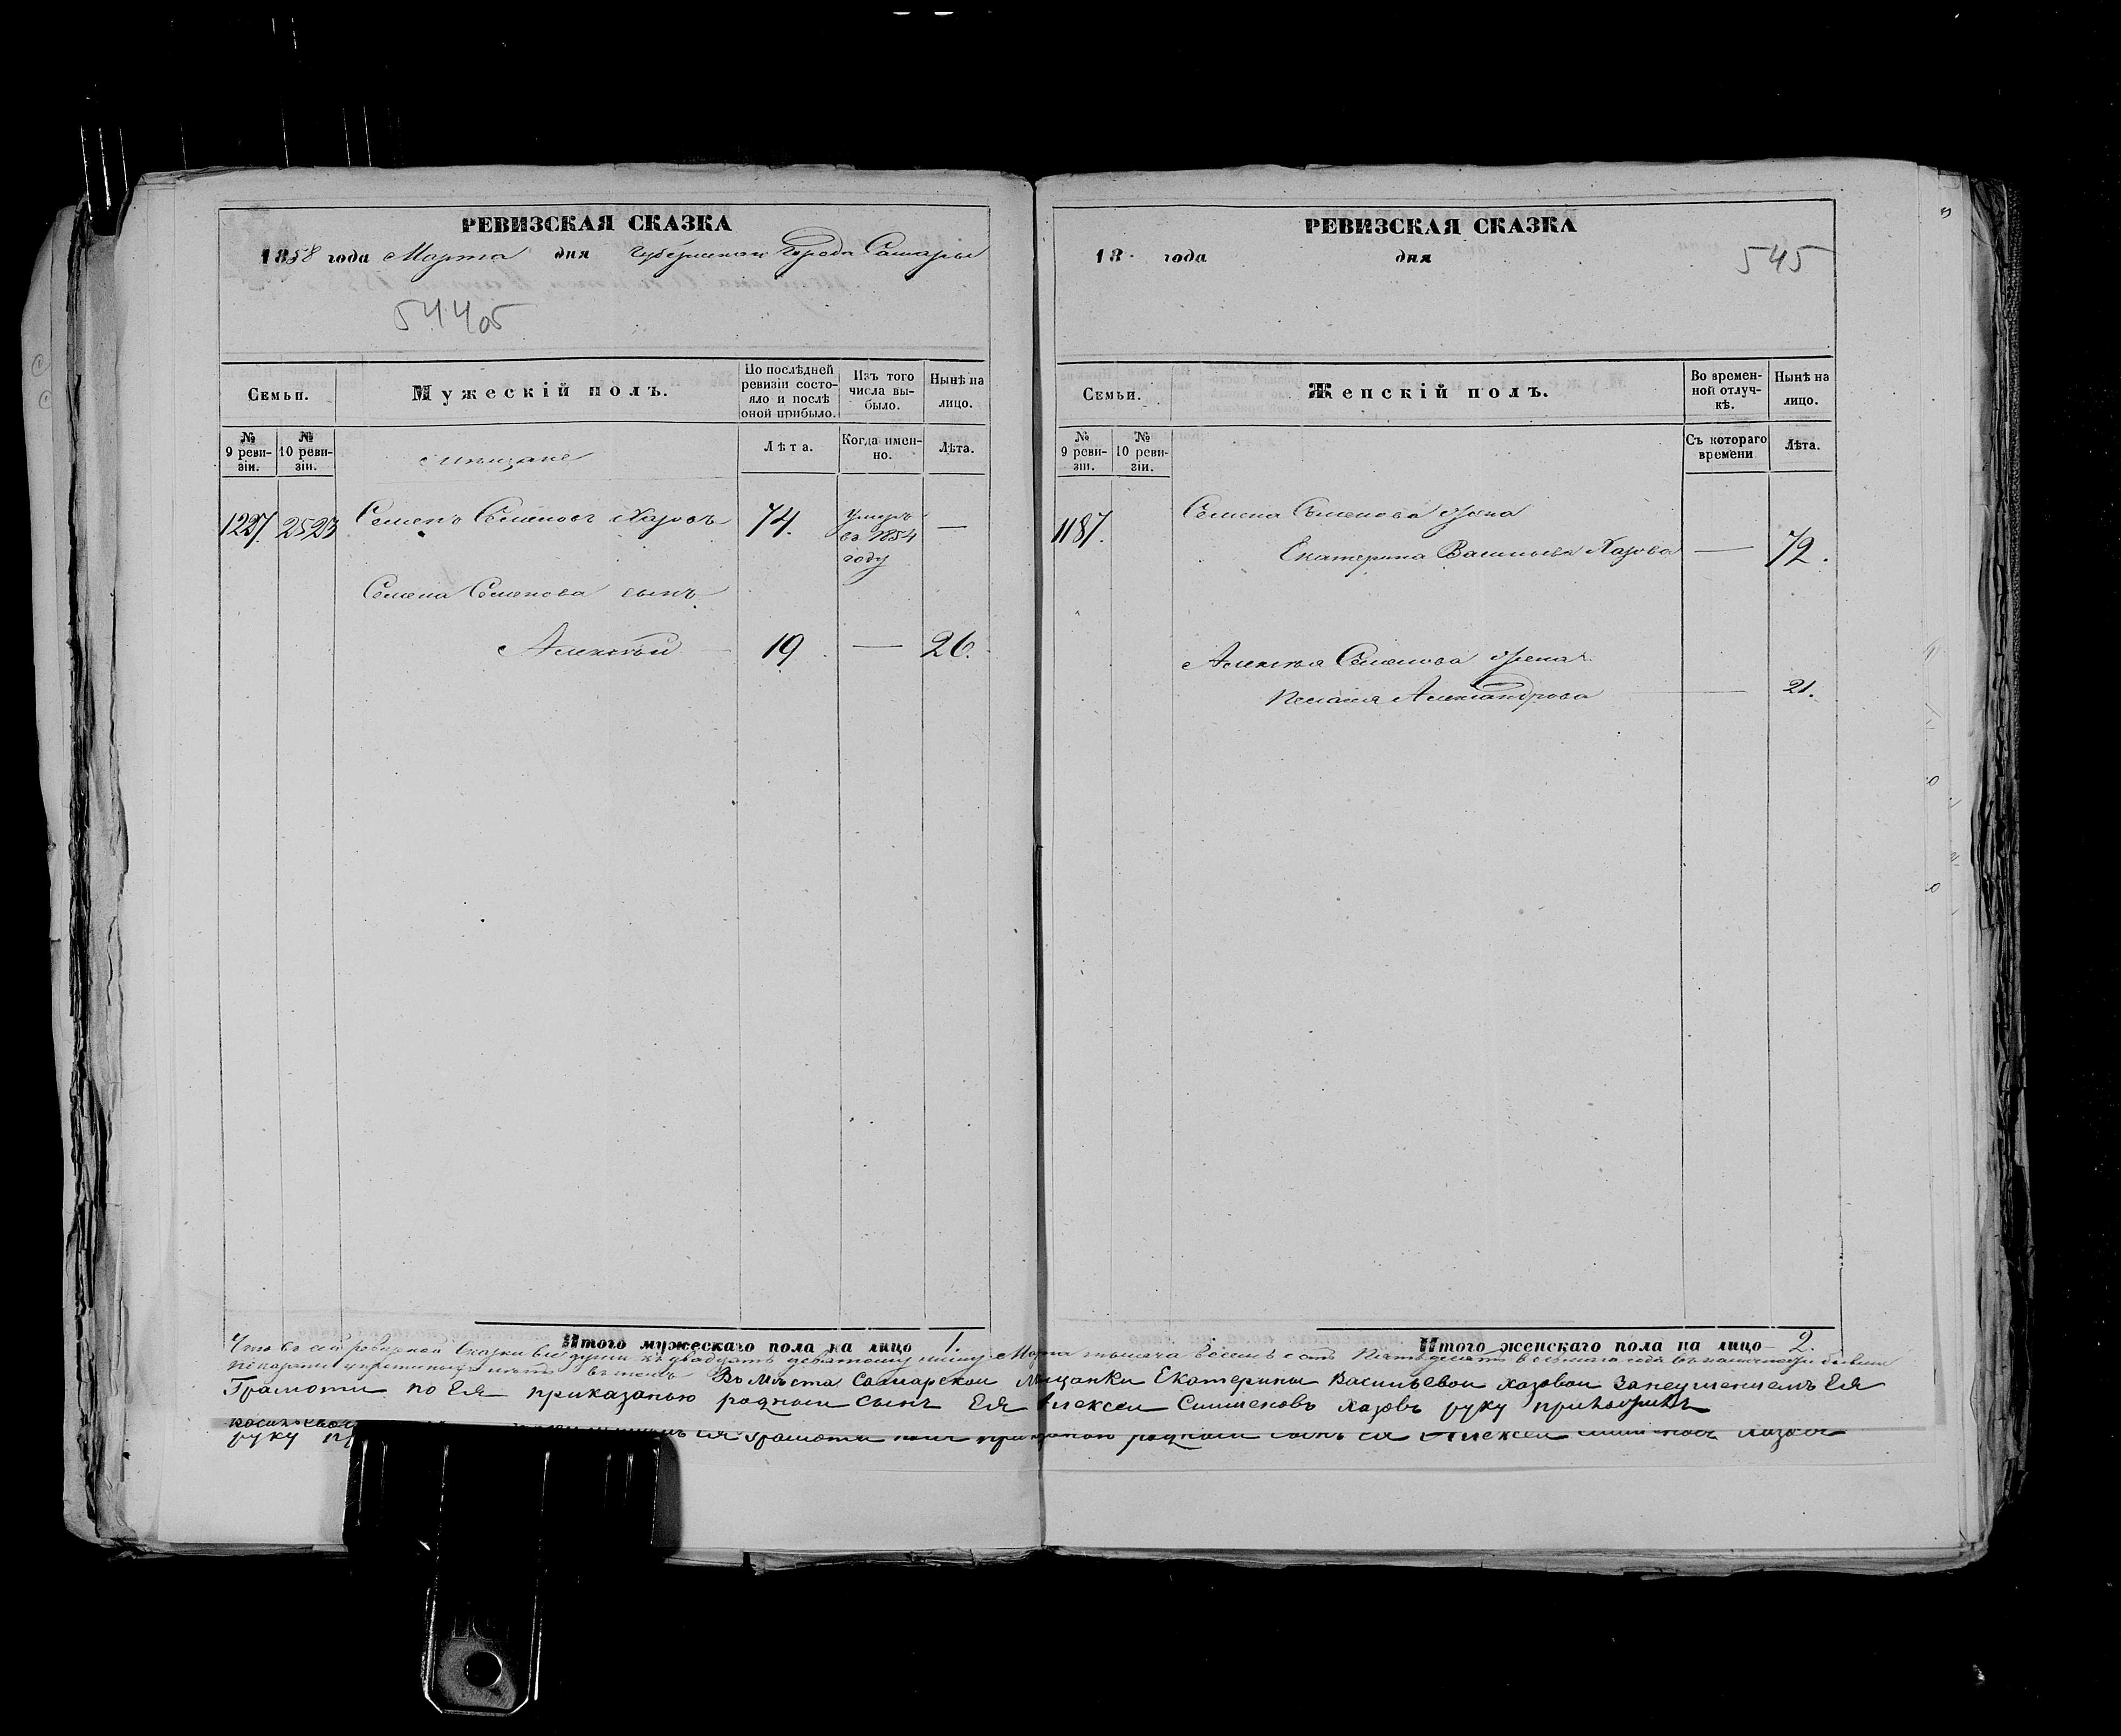 РЕВИЗСКАЯ СКАЗКА
1858 года Марта дня Губернскаго Города Самары
544об
Семьи.
Мужескій полъ.
По послѣдней ревизіи состояло и послѣ оной прибыло.
Изъ того числа выбыло.
Нынѣ на лицо.
№ 9 ревизіи.
№ 10 ревизіи.
Мѣщане
Лѣта.
Когда именно.
Лѣта.
1227. 2523 Семенъ Семеновъ Хазовъ 74. умеръ въ 1854 году —
Семена Семенова сынъ
Алексѣй 19 — 26.
Итого мужескаго пола на лицо 1.
РЕВИЗСКАЯ СКАЗКА
18 года дня
545
Семьи.
Женскій полъ.
Во временной отлучкѣ.
Нынѣ на лицо.
№ 9 ревизіи.
№ 10 ревизіи.
Съ котораго времени
Лѣта.
1187. Семена Семенова жена
Екатерина Васильева Хазова — 72.
Алексѣя Семенова жена
Пелагея Александрова — 21.
Итого женскаго пола на лицо 2.
Что въ сей ревизкой сказки все души къ двадцать девятому числу Марта тысяча восемь сотъ пятьдесятъ восьмаго года въ наличности бывшие
показаны и прописныхъ нѣтъ въ томъ Въ мѣста Самарской Мѣщанки Екатерины Васильевой Хазовой Занеуменіемъ Ея
Грамоты по Ея приказанью родной сынъ Ея Алексей Симменовъ Хазовъ руку приложилъ
руку Ея Грамоты родной сынъ ея Алексей Хазовъ